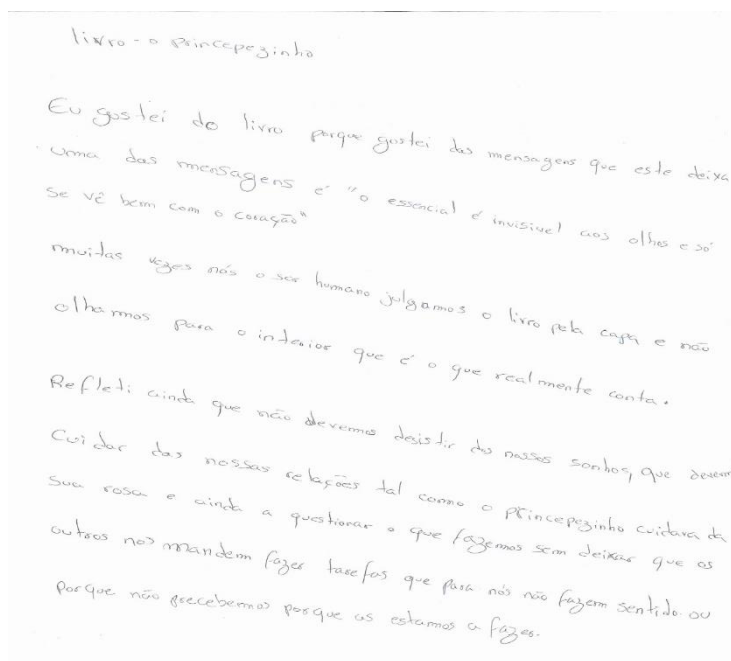 livro - o princepezinho
Eu gostei do livro porque gostei das mensagens que este deixa
uma das mensagens é "o essencial é invisivel aos olhos e só
se vê bem com o coração"
muitas vezes nós o ser humano julgamos o livro pela capa e não
olhamos para o interior que é o que realmente conta.
Refleti ainda que não devemos desistir dos nossos sonhos, que devem
cuidar das nossas relações tal como o princepezinho cuidara da
sua rosa e ainda a questionar o que fazemos sem deixar que os
outros nos mandem fazer tarefas que para nós não fazem sentido ou
porque não precebermos porque as estamos a fazer.